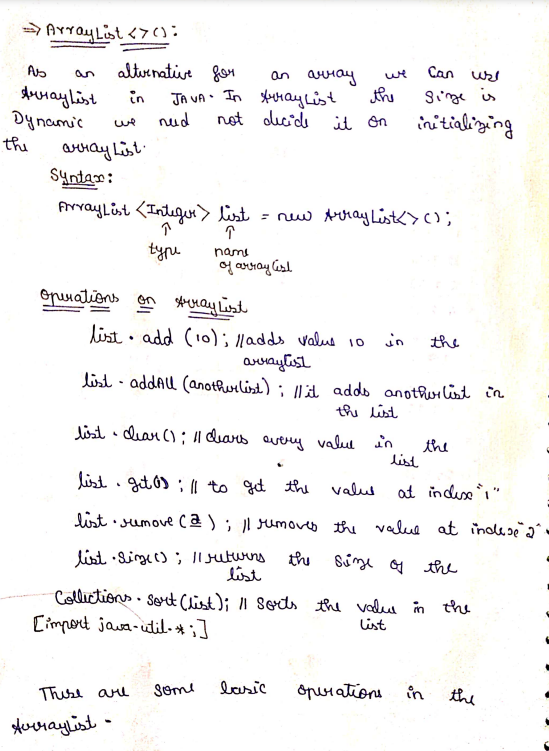 ⇒ ArrayList <>():
As an alternative for an array we can use
ArrayList in JAVA. In ArrayList the size is
Dynamic we need not decide it on initializing
the arrayList.
Syntax:
ArrayList <Integer> list = new ArrayList<>();
↑ ↑
type name
of arraylist
Operations on ArrayList
list.add (10); //adds value 10 in the
arraylist
list.addAll (anotherlist); //it adds anotherlist in
the list
list.clear(); //clears every value in the
list
list.get(1); // to get the value at index "1"
list.remove(2); // removes the value at index "2".
list.size(); //returns the size of the
list
Collections.sort(list); // Sorts the value in the
list
[import java.util.*;]
These are some basic operations in the
ArrayList.